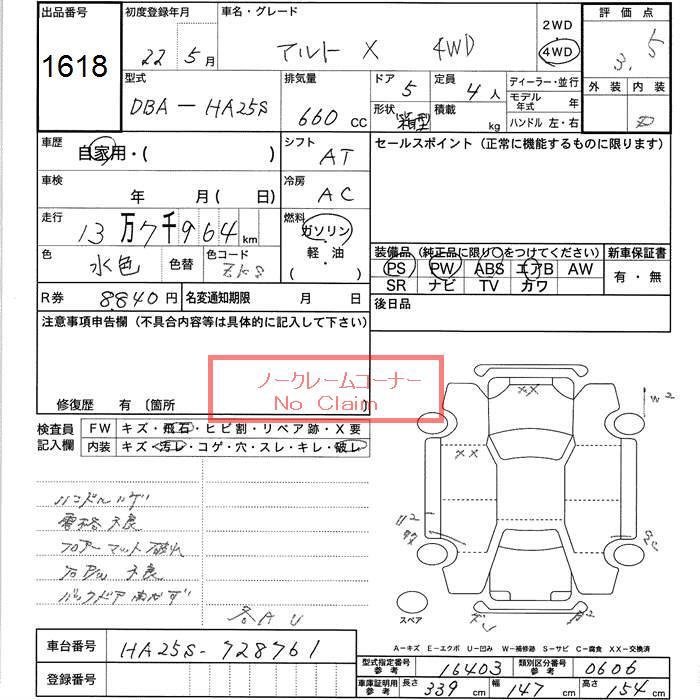 出品番号 初度登録年月 車名・グレード 2WD 評価点
1618 22 5月 アルト X 4WD 4WD 3.5
型式 排気量 ドア 5 定員 4人 ディーラー・並行 外装 内装
DBA-HA25S 660 CC 形状 箱型 積載 kg モデル年式 年
ハンドル 左・右 D
車歴 自家用・( ) シフト AT セールスポイント (正常に機能するものに限ります)
車検 年 月( 日) 冷房 AC
走行 13万7千964km 燃料 ガソリン
軽・油
( )
色 水色 色替 色コード ZKS
装備品 (純正品に限り○をつけてください) 新車保証書
PS PW ABS エアB AW 有・無
SR ナビ TV カワ
R券 8840円 名変通知期限 月 日 後日品
注意事項申告欄 (不具合内容等は具体的に記入して下さい)
ノークレームコーナー
No Claim
修復歴 有 〔箇所
検査員記入欄 FW キズ・飛石・ヒビ割・リペア跡・X要
内装 キズ・汚レ・コゲ・穴・スレ・キレ・破レ
XX W2
XX
ハンドルハゲ
フロアーマット破れ
不良
バックドア
各AU
スペア
A-キズ E-エクボ U-凹み W-補修跡 S-サビ C-腐食 XX-交換済
車台番号 HA25S-728761 型式指定番号 参考 16403 類別区分番号 参考 0606
登録番号 車庫証明用 参考 長さ 339 cm 幅 147 cm 高さ 154 cm